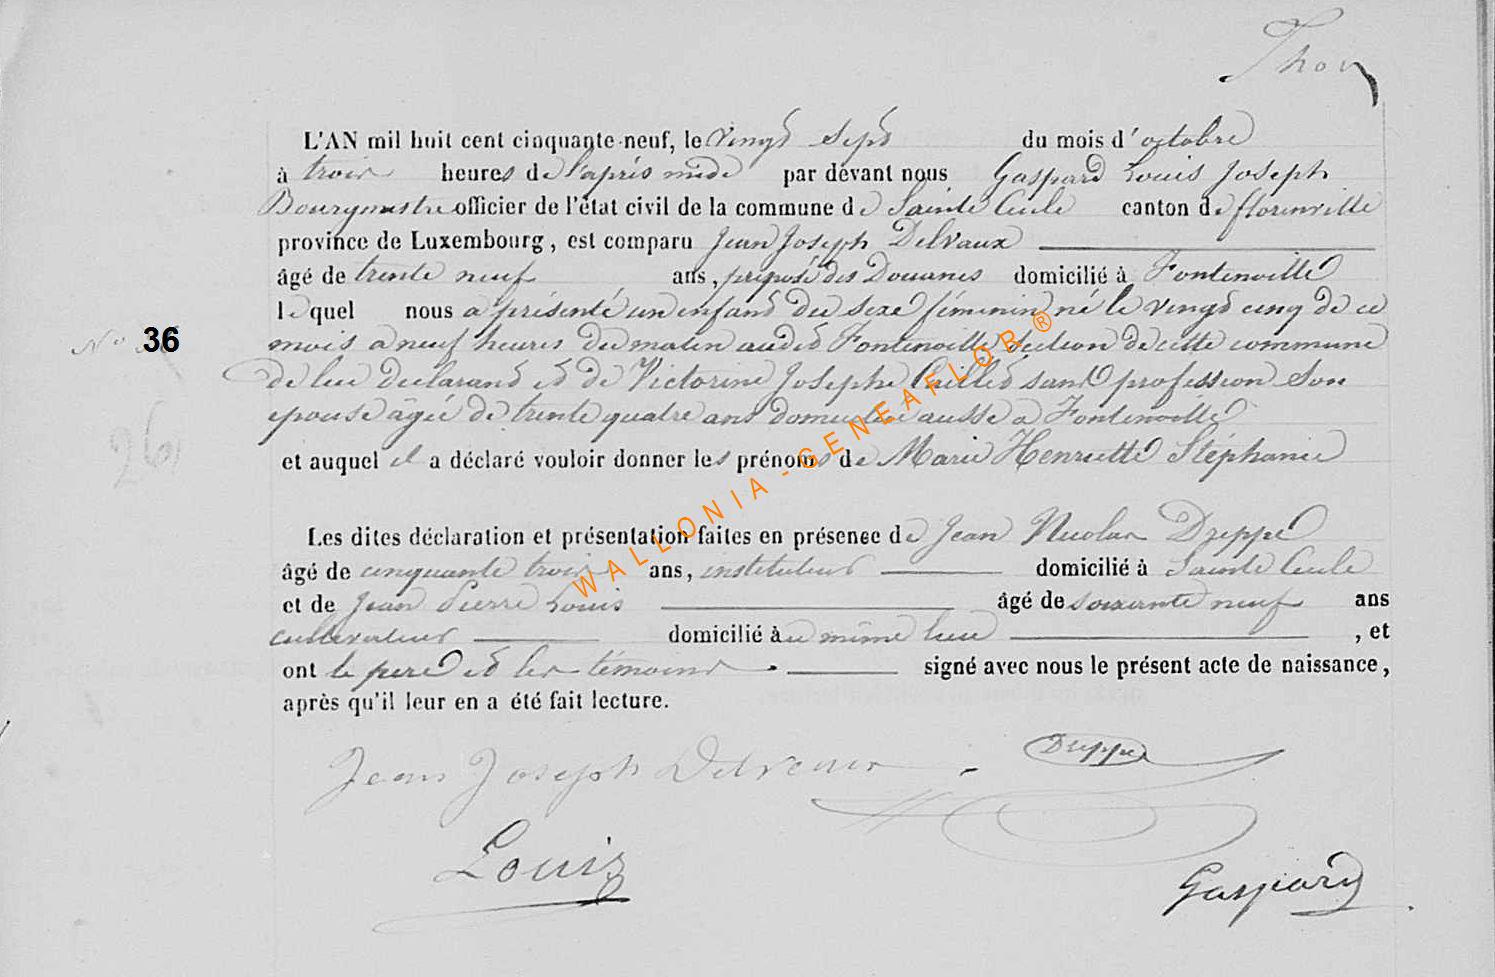 L'AN mil huit cent cinquante-neuf, le vingt sept du mois d'octobre
à trois heures de l'après midi par devant nous Gaspard Louis Joseph
Bourgmestre officier de l'état civil de la commune de Sainte Cecile canton de florenville
province de Luxembourg, est comparu Jean Joseph Delvaux
âgé de trente neuf ans, préposé des Douanes domicilié à Fontenoille
lequel nous a présenté un enfant du sexe féminin né le vingt cinq de ce
N° 36 mois a neuf heures du matin audit Fontenoille section de cette commune
de lui declarant et de Victorine Josephe sans profession son
epouse âgée de trente quatre ans domiciliée aussi a Fontenoille
26
et auquel il a déclaré vouloir donner les prénoms de Marie Henriette Stéphanie
Les dites déclaration et présentation faites en présence de Jean Nicolas Dreppe
âgé de cinquante trois ans, instituteur domicilié à Sainte Cecile
et de Jean Pierre Louis âgé de soixante neuf ans
cultivateur domicilié au même lieu , et
ont le pere et les témoins signé avec nous le présent acte de naissance,
après qu'il leur en a été fait lecture.
Jean Joseph Delvaux Dreppe
Louis
Gaspard
WALLONIA - GENEAFLOR ®